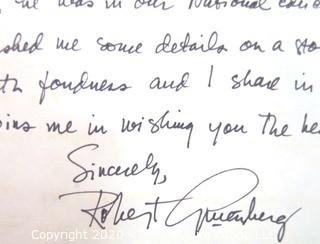 he was in our National
shed me some details on a sto
th fondness and I share in
oins me in wishing you the be
Sincerely,
Robert Greenberg
Copyright 2020